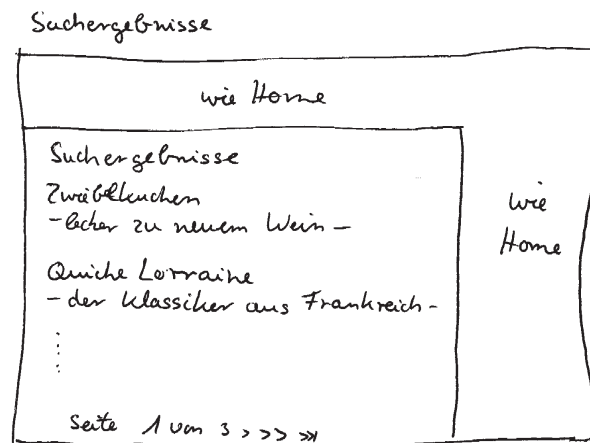 Suchergebnisse
wie Home
Suchergebnisse
Zwiebelkuchen
- lecker zu neuem Wein -
wie
Home
Quiche Lorraine
- der Klassiker aus Frankreich -
Seite 1 von 3 > >> >>|